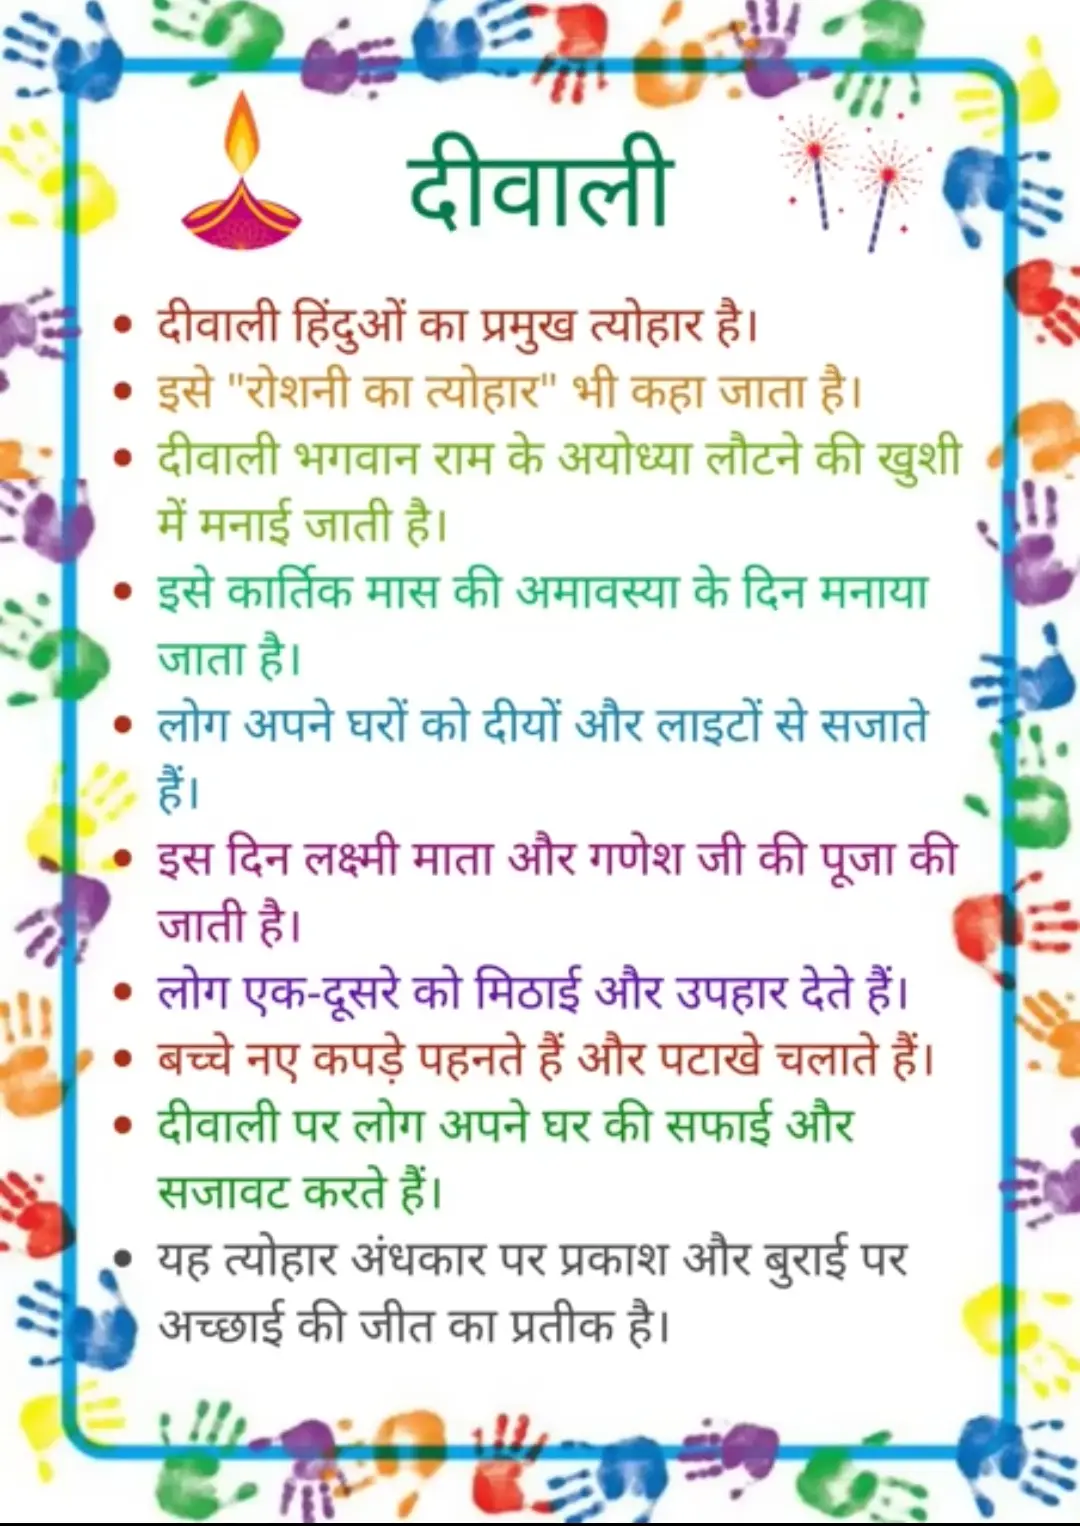 दीवाली
• दीवाली हिंदुओं का प्रमुख त्योहार है।
• इसे "रोशनी का त्योहार" भी कहा जाता है।
• दीवाली भगवान राम के अयोध्या लौटने की खुशी
में मनाई जाती है।
• इसे कार्तिक मास की अमावस्या के दिन मनाया
जाता है।
• लोग अपने घरों को दीयों और लाइटों से सजाते
हैं।
• इस दिन लक्ष्मी माता और गणेश जी की पूजा की
जाती है।
• लोग एक-दूसरे को मिठाई और उपहार देते हैं।
• बच्चे नए कपड़े पहनते हैं और पटाखे चलाते हैं।
• दीवाली पर लोग अपने घर की सफाई और
सजावट करते हैं।
• यह त्योहार अंधकार पर प्रकाश और बुराई पर
अच्छाई की जीत का प्रतीक है।